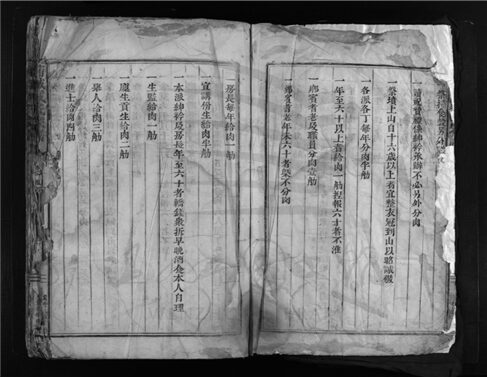 一祭墳上山自十六歲以上者宜整衣冠到山以昭誠敬
各派各丁每年分肉半觔
一年至六十以上者給肉一觔捏報六十者不准
一鄉賓耆老及職員分肉壹觔
一鄉賓耆老年未六十者槩不分肉
一房長每年給肉一觔
宣講信生給肉半觔
一本派紳衿及房長年至六十者轎錢衆折早晚酒仝本人自理
一生監給肉一觔
一廩生貢生給肉二觔
舉人給肉三觔
一進士給肉四觔